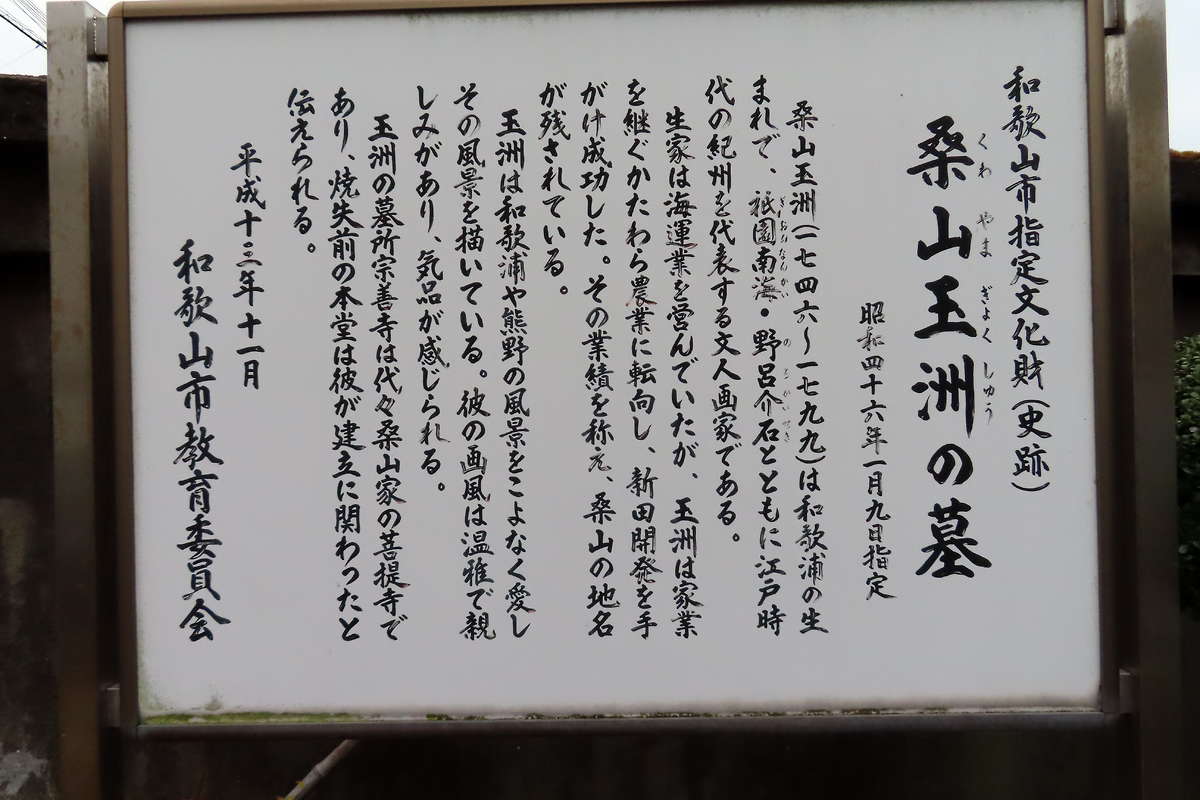 和歌山市指定文化財(史跡)
桑山玉洲の墓
くわやまぎょくしゅう
昭和四十六年一月九日指定
桑山玉洲(一七四六~一七九九)は和歌浦の生
まれで、祇園南海・野呂介石とともに江戸時
ぎおんなんかい のろかいせき
代の紀州を代表する文人画家である。
生家は海運業を営んでいたが、玉洲は家業
を継ぐかたわら農業に転向し、新田開発を手
がけ成功した。その業績を称え、桑山の地名
が残されている。
玉洲は和歌浦や熊野の風景をこよなく愛し
その風景を描いている。彼の画風は温雅で親
しみがあり、気品が感じられる。
玉洲の墓所宗善寺は代々桑山家の菩提寺で
あり、焼失前の本堂は彼が建立に関わったと
伝えられる。
平成十三年十一月
和歌山市教育委員会